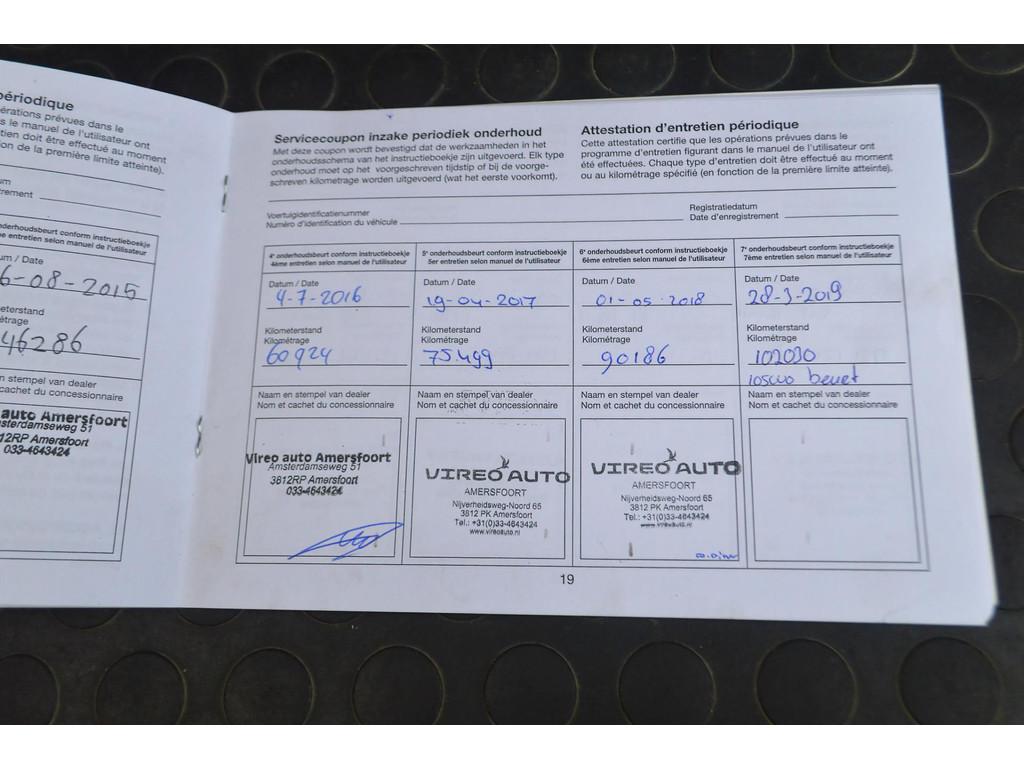 périodique
érations prévues dans le
s le manuel de l'utilisateur ont
tien doit être effectué au moment
on de la première limite atteinte).
um
rement
nderhoudsbeurt conform instructieboekje
e entretien selon manuel de l'utilisateur
um / Date
6-08-2015
eterstand
étrage
46286
n stempel van dealer
cachet du concessionnaire
auto Amersfoort
sterdamseweg 51
12RP Amersfoort
033-4643424
Servicecoupon inzake periodiek onderhoud
Met deze coupon wordt bevestigd dat de werkzaamheden in het
onderhoudsschema van het instructieboekje zijn uitgevoerd. Elk type
onderhoud moet op het voorgeschreven tijdstip of bij de voorge-
schreven kilometrage worden uitgevoerd (wat het eerste voorkomt).
Attestation d'entretien périodique
Cette attestation certifie que les opérations prévues dans le
programme d'entretien figurant dans le manuel de l'utilisateur ont
été effectuées. Chaque type d'entretien doit être effectué au moment
ou au kilométrage spécifié (en fonction de la première limite atteinte).
Voertuigidentificatienummer
Numéro d'identification du véhicule
Registratiedatum
Date d'enregistrement
4e onderhoudsbeurt conform instructieboekje
4ème entretien selon manuel de l'utilisateur
Datum / Date
4-7-2016
Kilometerstand
Kilométrage
60924
Naam en stempel van dealer
Nom et cachet du concessionnaire
Vireo auto Amersfoort
Amsterdamseweg 51
3812RP Amersfoort
033-4643424
5e onderhoudsbeurt conform instructieboekje
5er entretien selon manuel de l'utilisateur
Datum / Date
19-04-2017
Kilometerstand
Kilométrage
75499
Naam en stempel van dealer
Nom et cachet du concessionnaire
VIREO AUTO
AMERSFOORT
Nijverheidsweg-Noord 65
3812 PK Amersfoort
Tel.: +31(0)33-4643424
www.vireoauto.nl
6e onderhoudsbeurt conform instructieboekje
6ème entretien selon manuel de l'utilisateur
Datum / Date
01-05-2018
Kilometerstand
Kilométrage
90186
Naam en stempel van dealer
Nom et cachet du concessionnaire
VIREO AUTO
AMERSFOORT
Nijverheidsweg-Noord 65
3812 PK Amersfoort
Tel.: +31(0)33-4643424
www.vireoauto.nl
7e onderhoudsbeurt conform instructieboekje
7ème entretien selon manuel de l'utilisateur
Datum / Date
28-3-2019
Kilometerstand
Kilométrage
102030
Naam en stempel van dealer
Nom et cachet du concessionnaire
19